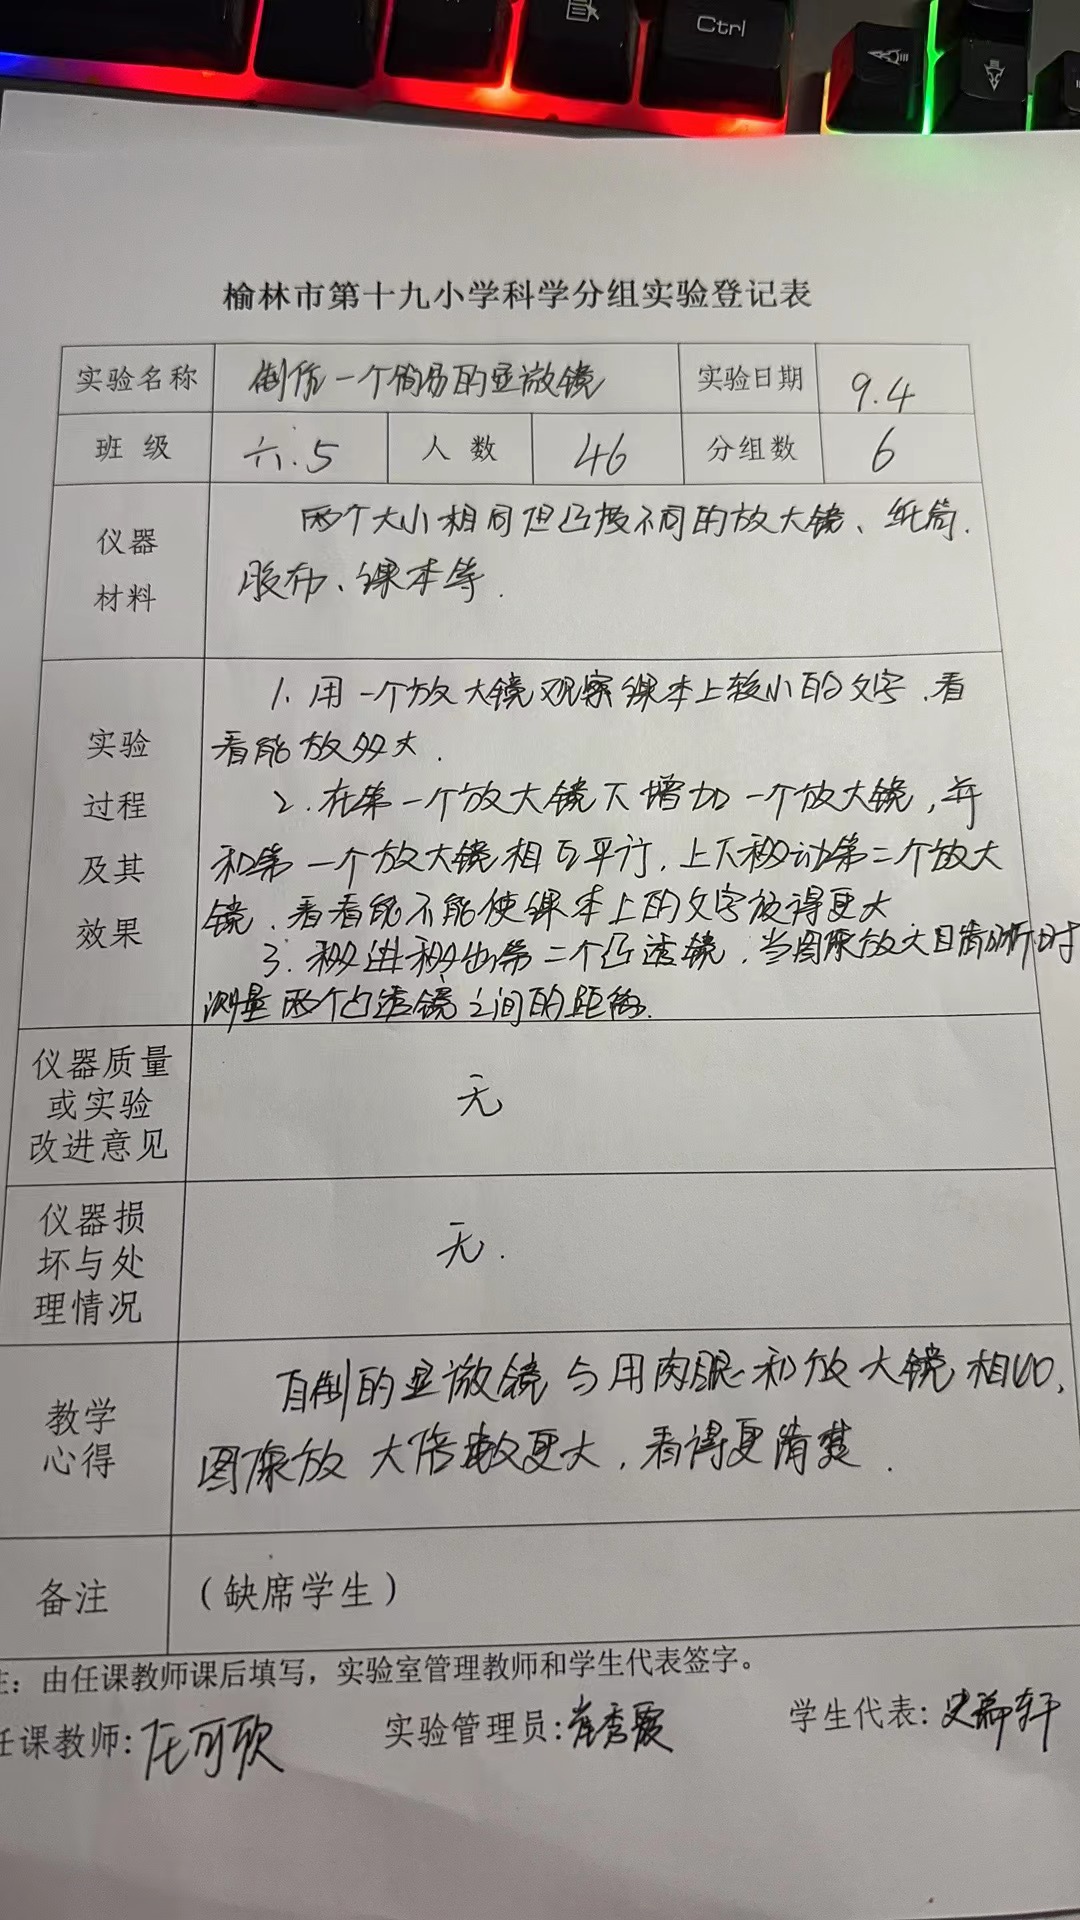 Ctrl
榆林市第十九小学科学分组实验登记表
实验名称 制作一个简易的显微镜 实验日期 9.4
班级 六.5 人数 46 分组数 6
仪器材料 两个大小相同但凸度不同的放大镜、纸筒、
胶布、课本等.
实验过程及其效果 1. 用一个放大镜观察课本上较小的文字,看
看能放多大.
2. 在第一个放大镜下增加一个放大镜,并
和第一个放大镜相互平行,上下移动第二个放大
镜,看看能不能使课本上的文字放得更大
3. 移进移出第二个凸透镜,当图像放大且清晰时
测量两个凸透镜之间的距离.
仪器质量或实验改进意见 无
仪器损坏与处理情况 无.
教学心得 自制的显微镜与用肉眼和放大镜相比,
图像放大倍数更大,看得更清楚.
备注 (缺席学生)
注:由任课教师课后填写,实验室管理教师和学生代表签字。
任课教师: 可欣 实验管理员: 秀霞 学生代表: 史 轩